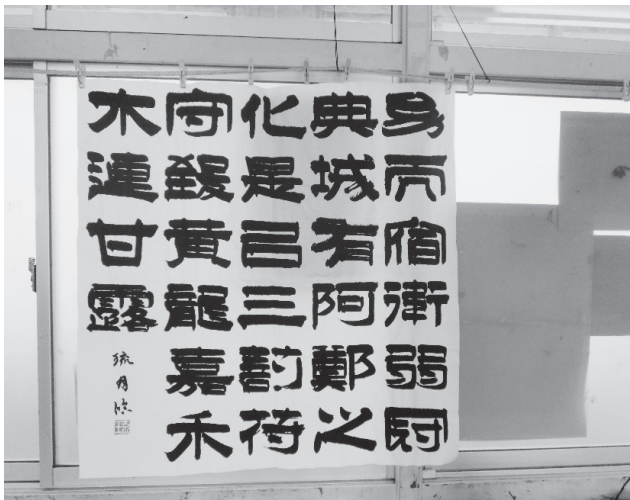 幼而宿衛弱冠
典城有阿鄭之
化是㠯三剖符
守致黃龍嘉禾
木連甘露